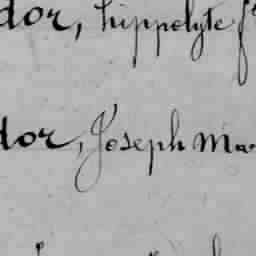 dor, hippolyte f
dor, Joseph Ma